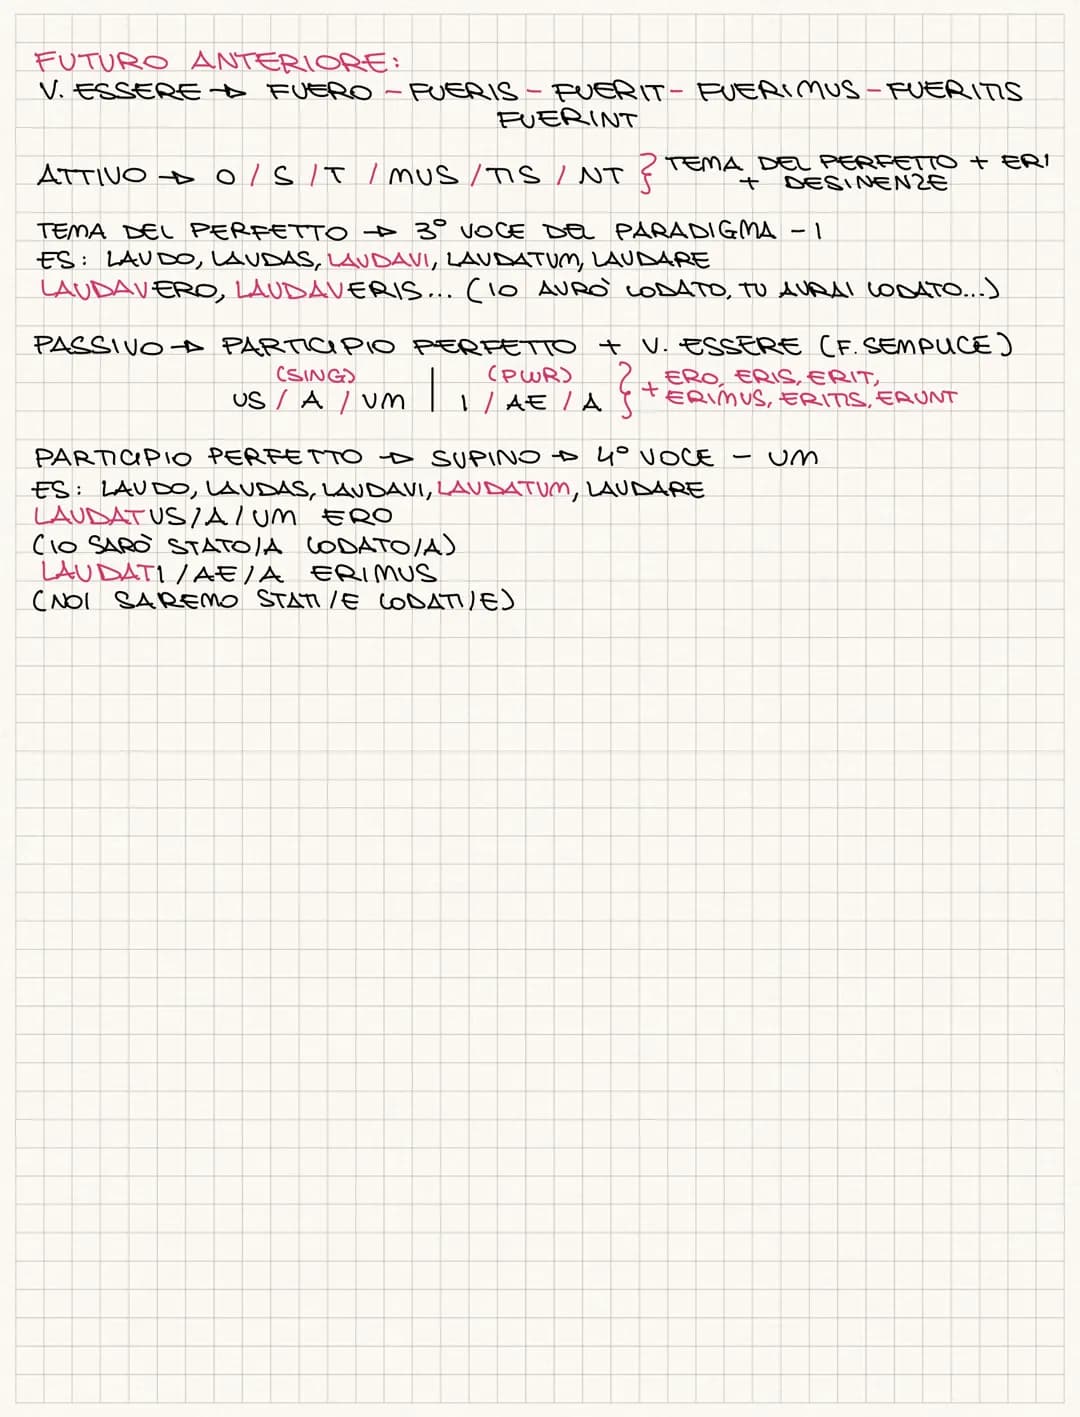 FUTURO ANTERIORE:
V. ESSERE → FUERO - FUERIS - FUERIT - FUERIMUS - FUERITIS
FUERINT
ATTIVO → O / S / T / MUS / TIS / NT } TEMA DEL PERFETTO + ERI
+ DESINENZE
TEMA DEL PERFETTO → 3° VOCE DEL PARADIGMA - I
ES: LAUDO, LAUDAS, LAUDAVI, LAUDATUM, LAUDARE
LAUDAVERO, LAUDAVERIS... (IO AVRÒ LODATO, TU AVRAI LODATO...)
PASSIVO → PARTICIPIO PERFETTO + V. ESSERE (F. SEMPLICE)
(SING) (PLUR) } + ERO, ERIS, ERIT,
US / A / UM | I / AE / A ERIMUS, ERITIS, ERUNT
PARTICIPIO PERFETTO → SUPINO → 4° VOCE - UM
ES: LAUDO, LAUDAS, LAUDAVI, LAUDATUM, LAUDARE
LAUDATUS/A/UM ERO
(IO SARÒ STATO/A LODATO/A)
LAUDATI/AE/A ERIMUS
(NOI SAREMO STATI/E LODATI/E)